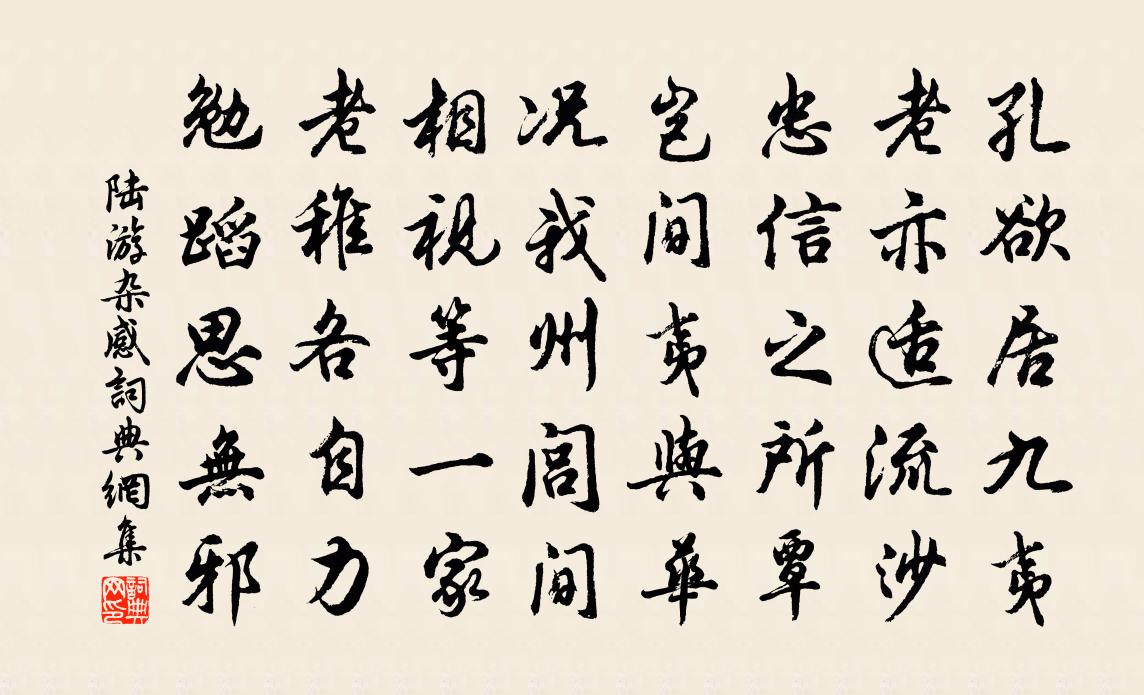 孔欲居九夷
老亦适流沙
忠信之所覃
岂间夷與華
况我州闾间
相視等一家
老稚各自力
勉蹈思無邪
陆游杂感詞典網集
詞典网印